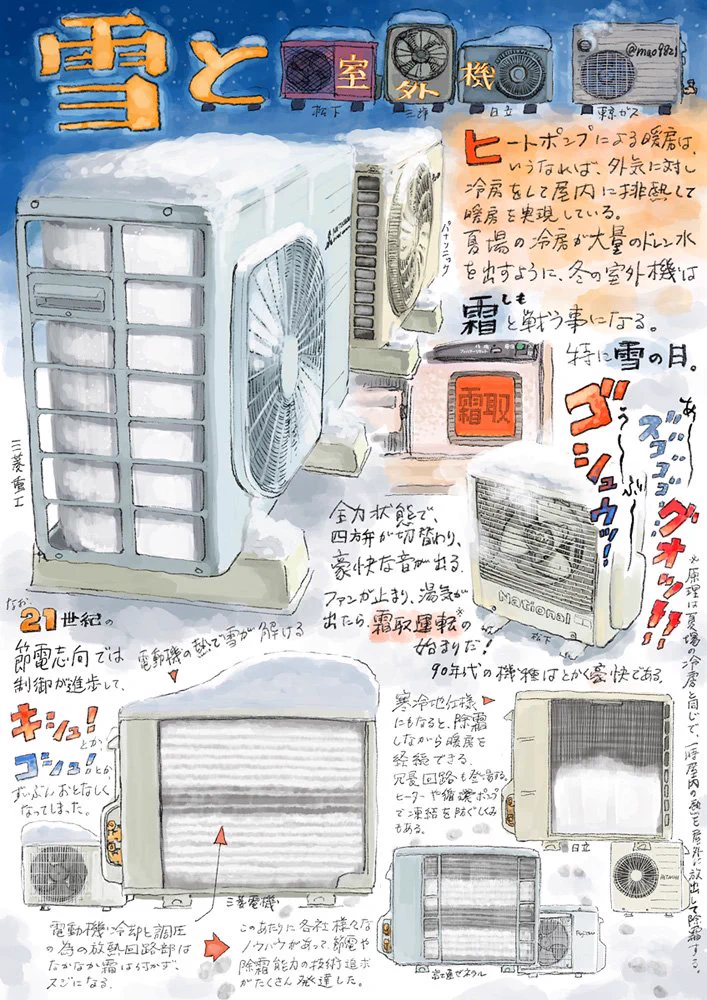 雪と室外機
@mao9821
松下
三洋
日立
東京ガス
ヒートポンプによる暖房は、
いうなれば、外気に対し
冷房をして屋内に排熱して
暖房を実現している。
夏場の冷房が大量のドレン水
を出すように、冬の室外機は
霜と戦う事になる。
しも
特に雪の日。
パナソニック
三菱重工
霜取
あ〜
う〜
ぶ〜
ズゴゴゴゴ
ゴシュウッ!
グオッ!!
全力状態で、
四方弁が切替わり、
豪快な音が出る。
ファンが止まり、湯気が
出たら、霜取運転※の
始まりだ!
National
松下
90年代の機種はとかく豪快である。
※原理は夏場の冷房と同じで、一時屋内の熱を屋外に放出して除霜する。
なお、
21世紀の
節電志向では
制御が進歩して、
キシュ!
とか、
ゴシュ!とか
ずいぶんおとなしく
なってしまった。
電動機の熱で雪が解ける
三菱電機
寒冷地仕様
にもなると、除霜
しながら暖房を
継続できる
冗長回路も登場する。
ヒーターや循環ポンプ
で凍結を防ぐしくみ
もある。
日立
HITACHI
電動機冷却と調圧
の為の放熱回路部は
なかなか霜は付かず、
スジになる。
このあたりに各社様々な
ノウハウがあって、節電や
除霜能力の技術進歩
がたくさん発達した。
Fujitsu
富士通ゼネラル